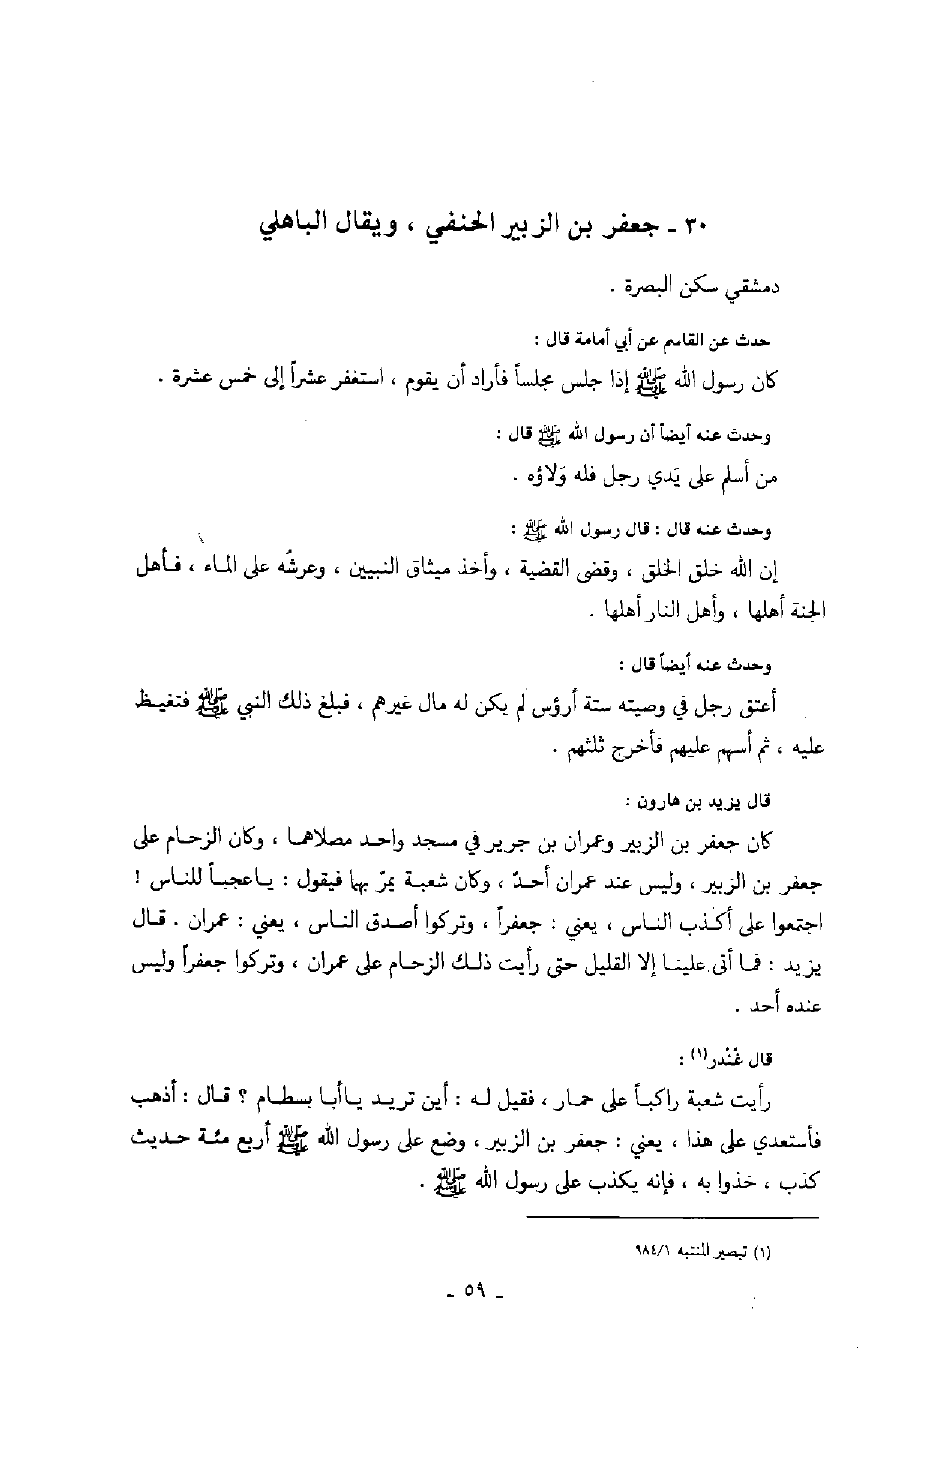 ٣٠ ـ جعفر بن الزبير الحنفي ، ويقال الباهلي
دمشقي سكن البصرة .
حدث عن القاسم عن أبي أمامة قال :
كان رسول الله ﷺ إذا جلس مجلساً فأراد أن يقوم ، استغفر عشراً إلى خمس عشرة .
وحدث عنه أيضاً أن رسول الله ﷺ قال :
من أسلم على يَدي رجل فله وَلاؤه .
وحدث عنه قال : قال رسول الله ﷺ :
إن الله خلق الخلق ، وقضى القضية ، وأخذ ميثاق النبيين ، وعرشُه على الماء ، فأهل
الجنة أهلها ، وأهل النار أهلها .
وحدث عنه أيضاً قال :
أعتق رجل في وصيته ستة أرؤس لم يكن له مال غيرهم ، فبلغ ذلك النبي ﷺ فتغيظ
عليه ، ثم أسهم عليهم فأخرج ثلثهم .
قال يزيد بن هارون :
كان جعفر بن الزبير وعمران بن جرير في مسجد واحد مصلاهما ، وكان الزحام على
جعفر بن الزبير ، وليس عند عمران أحدٌ ، وكان شعبة يمرّ بها فيقول : ياعجباً للناس !
اجتمعوا على أكذب الناس ، يعني : جعفراً ، وتركوا أصدق الناس ، يعني : عمران . قال
يزيد : فما أتى علينا إلا القليل حتى رأيت ذلك الزحام على عمران ، وتركوا جعفراً وليس
عنده أحد .
قال غُنْدر(١) :
رأيت شعبة راكباً على حمار ، فقيل له : أين تريد ياأبا بسطام ؟ قال : أذهب
فأستعدي على هذا ، يعني : جعفر بن الزبير ، وضع على رسول الله ﷺ أربع مئة حديث
كذب ، خذوا به ، فإنه يكذب على رسول الله ﷺ .
(١) تبصير المنتبه ٩٨٤/١
ـ ٥٩ ـ